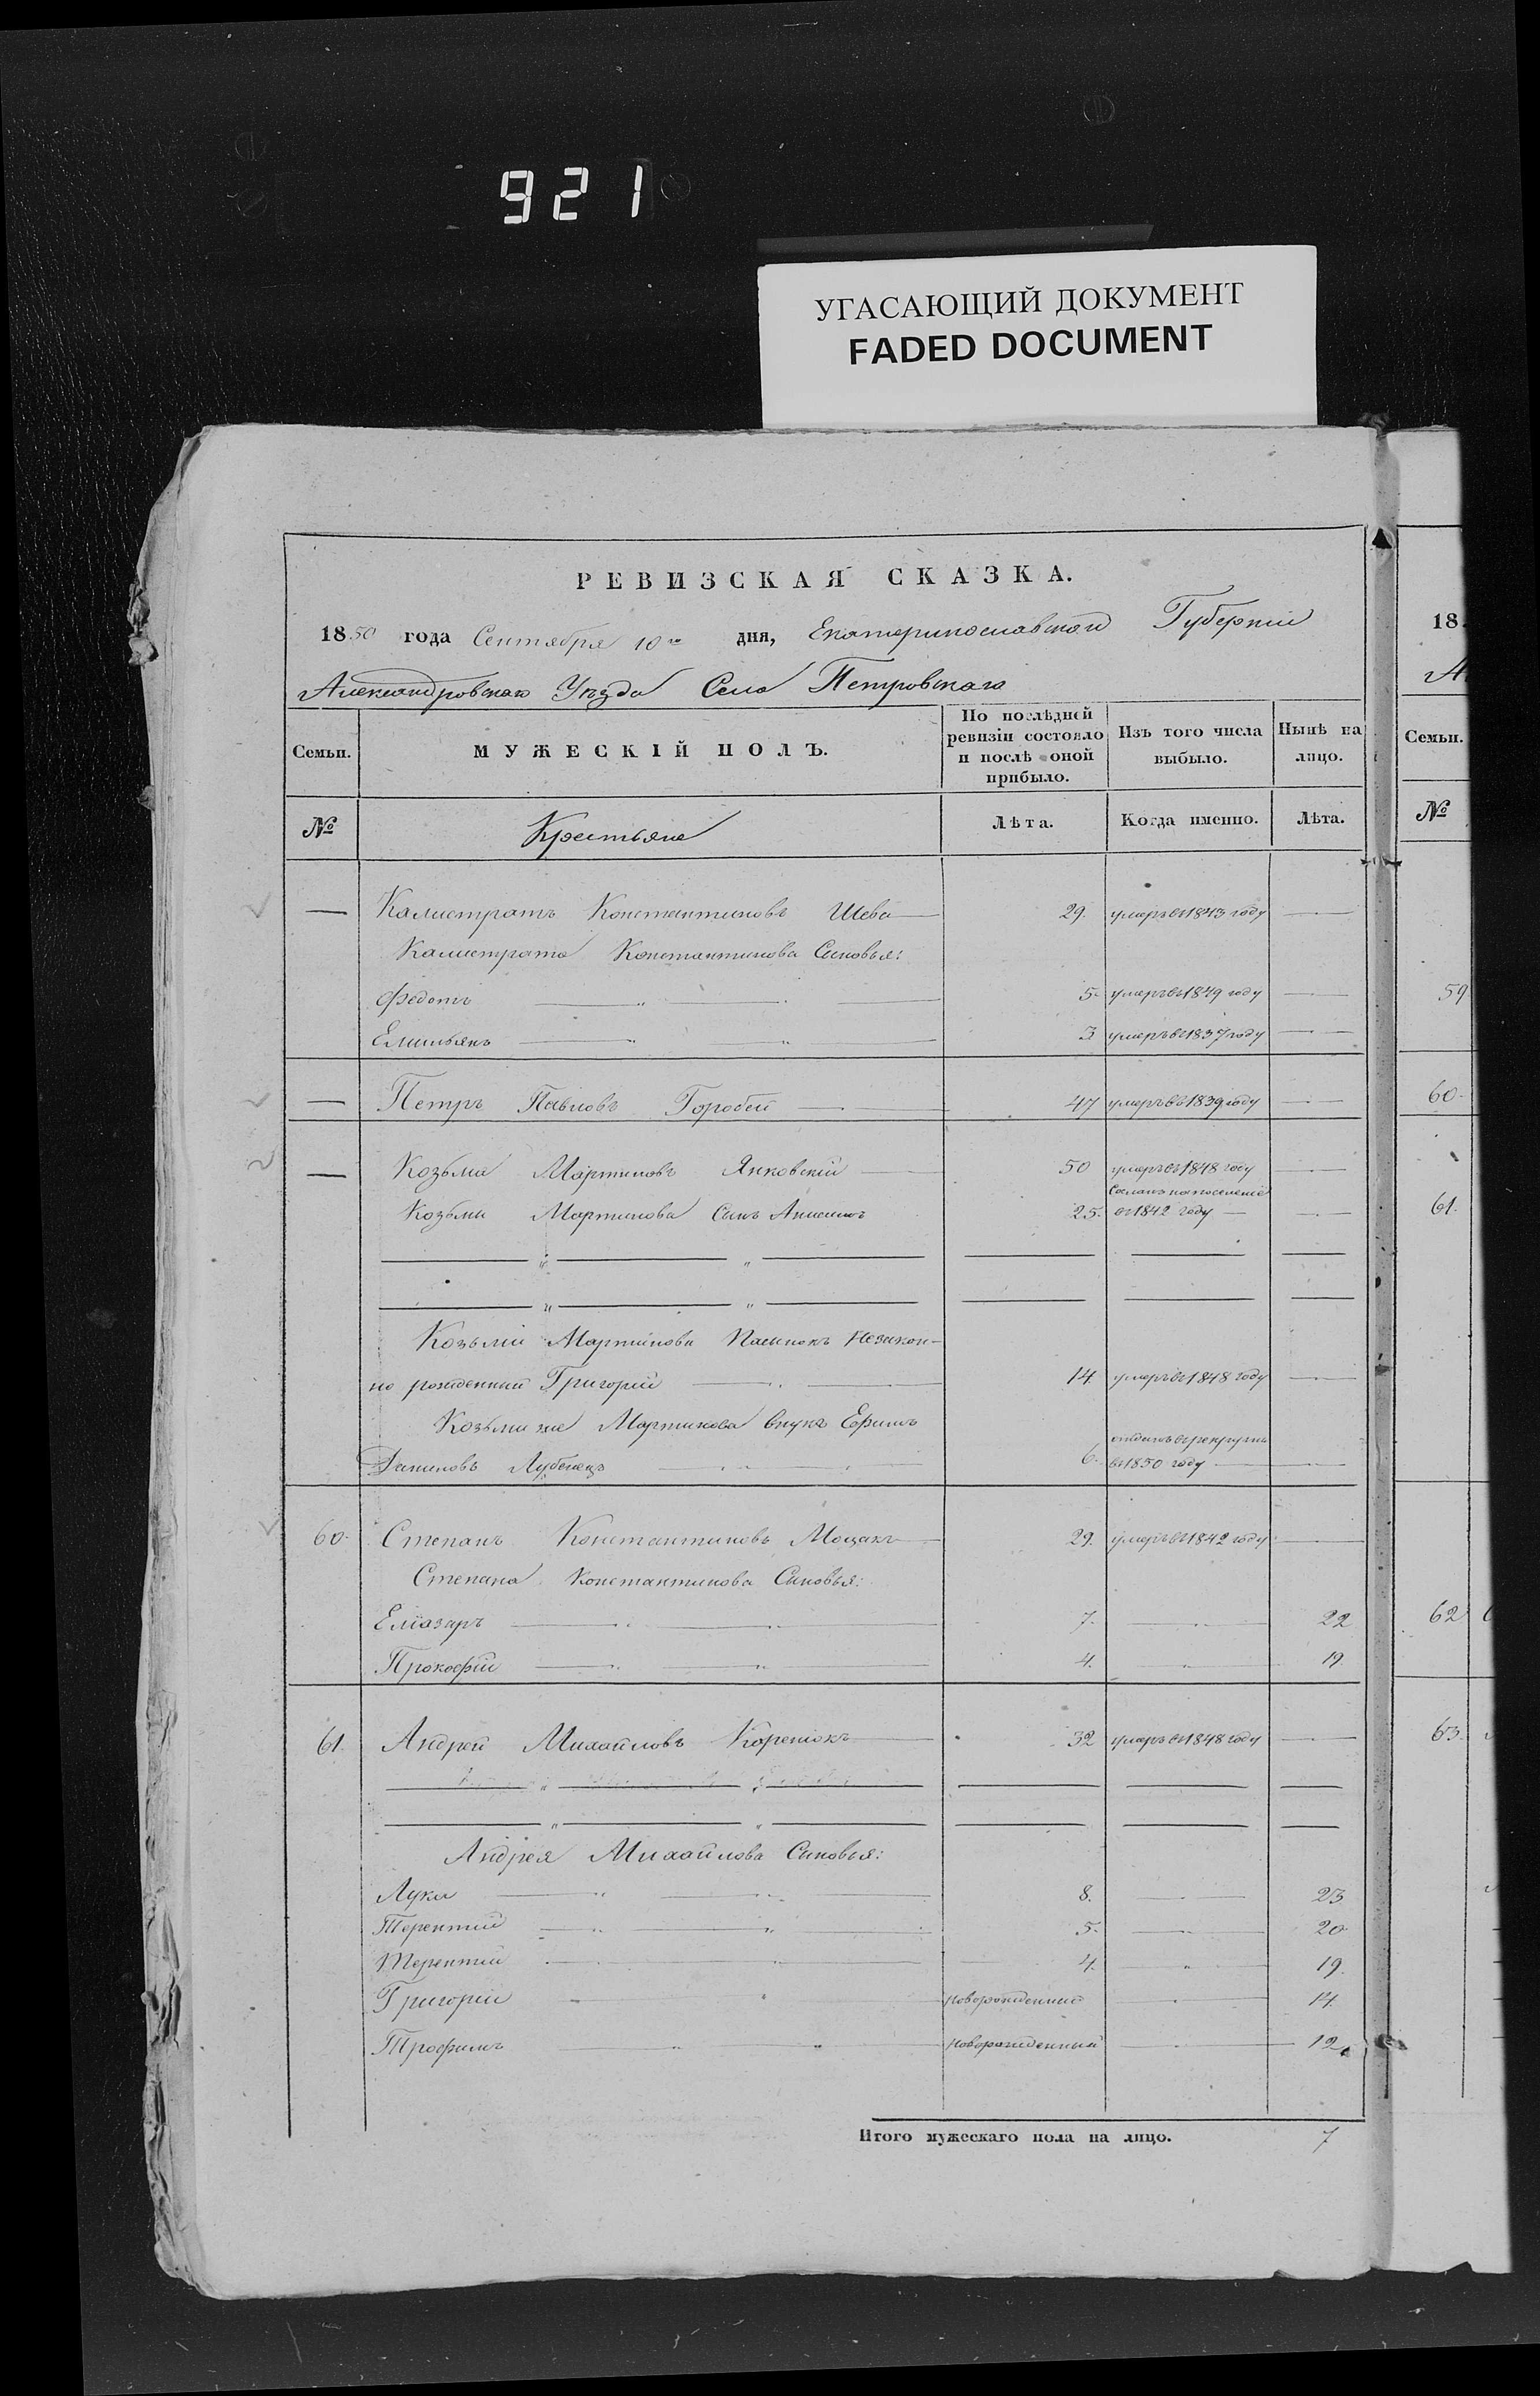 921
УГАСАЮЩИЙ ДОКУМЕНТ
FADED DOCUMENT
РЕВИЗСКАЯ СКАЗКА.
1850 года Сентября 10го дня, Екатеринославской Губерніи
Александровскаго Уѣзда Села Петровскаго
Семьи. МУЖЕСКІЙ ПОЛЪ. По послѣдней ревизіи состояло и послѣ оной прибыло. Изъ того числа выбыло. Нынѣ на лицо.
№ Крестьяне Лѣта. Когда именно. Лѣта.
— Калистратъ Константиновъ Шева 29. умеръ въ 1843 году
Калистрата Константинова Сыновья:
Федотъ 5. умеръ въ 1849 году
Емильянъ 3 умеръ въ 1837 году
— Петръ Павловъ Горобей 47 умеръ въ 1839 году
— Козьма Мартиновъ Янковскій 50 умеръ въ 1848 году
Козьмы Мартинова Сынъ Анисимъ 25. Сосланъ на поселеніе въ 1842 году
Козьмы Мартинова Пасынокъ Незакон-
но рожденный Григорій 14. умеръ въ 1848 году
Козьмы же Мартинова внукъ Ефимъ
Даниловъ Лубенецъ 6. отданъ въ рекруты въ 1850 году
60. Степанъ Константиновъ Моцакъ 29. умеръ въ 1842 году
Степана Константинова Сыновья:
Еліазаръ 7. 22
Прокофій 4. 19
61. Андрей Михайловъ Коренюкъ 32 умеръ въ 1848 году
Андрея Михайлова Сыновья:
Лука 8. 23
Терентій 5. 20
Терентій 4. 19.
Григорій новорожденный 14.
Трофимъ новорожденный 12.
Итого мужескаго пола на лицо. 7
18
А
Семьи.
№
59
60.
61.
62
63.